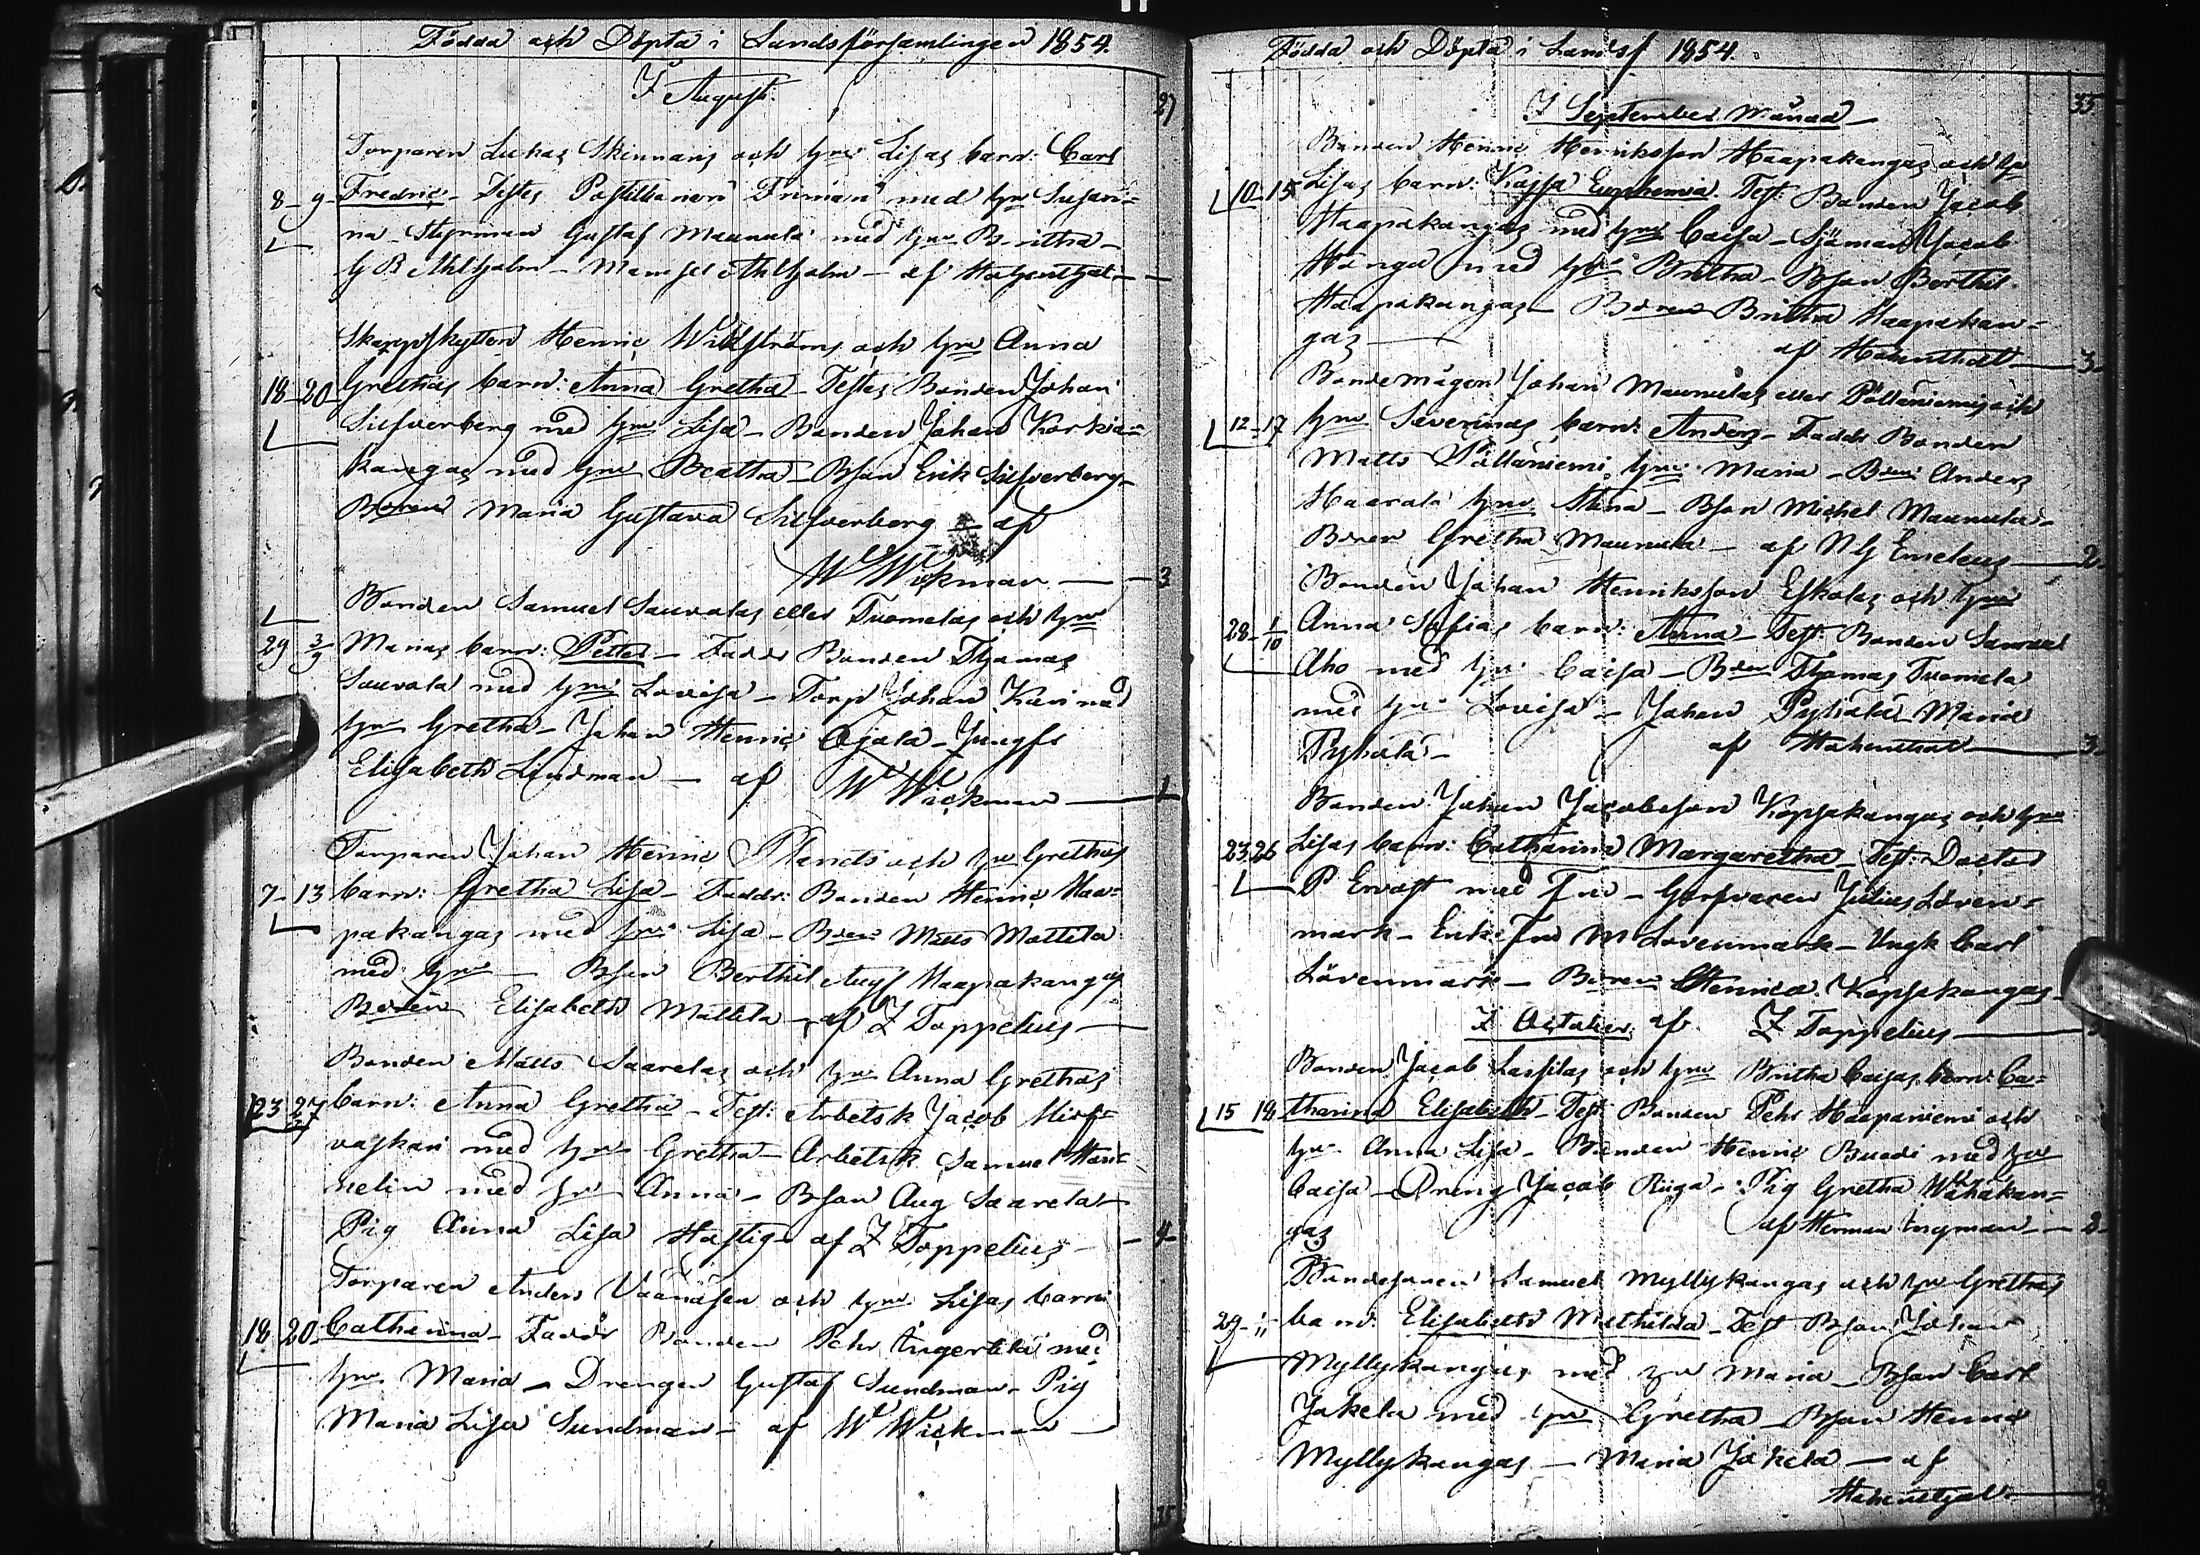 Födda och Döpta i Landsförsamlingen 1854.
I August.
27
Torparen Lukas Skinnars och hru Lisas barn: Carl
8 - 9 Fredric - Testes Postillianen Friman med hru Susan-
na - Styrman Gustaf Maunula med hru Britha -
G B Ahlholm - Mamsel Ahlholm - af Hohenthal -
Skarpskytten Henric Wikströms och hru Anna
18 - 20 Grethas barn: Anna Gretha - Testes Bonden Johan
Silfverberg med hru Lisa - Bonden Johan Korkia-
kangas med hru Beatha - Bson Erik Silfverberg -
Bdren Maria Gustava Silfverberg - af
W Wickman - 3
Bonden Samuel Sauvolas eller Tuomelas och hru
29 3/9 Marias barn: Petter - Faddr Bonden Thomas
Sauvola med hru Lovisa - Torp Johan Kari med
hru Gretha - Johan Henric Ojala - Jungfr
Elisabeth Lindman - af W Wickman - 1
Torparen Johan Henric Plants och hru Grethas
7 - 13 barn: Gretha Lisa - Faddr: Bonden Henric Haa-
pakangas med hru Lisa - Bden Matts Mattila
med hru - Bson Berthil Aug Haapakangas
Bdren Elisabeth Mattila - af Z Toppelius -
Bonden Matts Saarelas och hru Anna Grethas
23 27 barn: Anna Gretha - Test: Arbetsk Jacob Hirs-
vaskari med hru Gretha - Arbetsk Samuel Han-
nelin med hr Anna - Bson Aug Saarela -
Pig Anna Lisa Hastig - af Z Toppelius - 4
Torparen Anders Väänäsen och hru Lisas barn:
18 20 Catharina - Faddr Bonden Pehr Ångerlä med
hru Maria - Drengen Gustaf Sundman - Pig
Maria Lisa Sundman - af W Wickman -
Födda och Döpta i Landsf 1854.
35
I September Månad
Bonden Henric Henriksson Haapakangas och hu
10 - 15 Lisas barn: Kajsa Euphemia. Test: Bonden Jacob
Haapakangas med hru Caisa - Sjöman Jacob
Hånga med hru Britha - Bson Berthil
Haapakangas - Bdren Britha Haapakan-
gas - af Hohenthal - 3
Bondemågen Johan Maunulas eller Pöllaniemis och
12 - 17 hru Saverinas barn: Anders - Faddr Bonden
Matts Pöllaniemi, hru Maria - Bden Anders
Haarala hru Stina - Bson Michel Maunula -
Bdren Gretha Maunula - af N G Emeleus - 2
Bonden Johan Henriksson Eskolas och hru
28 - 1/10 Anna Sofias barn: Anna - Test: Bonden Samuel
Aho med hru Caisa - Bden Thomas Tuomela
med hru Lovisa - Johan Pyhälä - Maria
Pyhälä - af Hohenthal - 3
Bonden Johan Jacobsson Kopsakangas och hru
23 26 Lisas barn: Catharina Margaretha - Test: Doctor
P Ervast med Fru - Garfvaren Julius Löven-
mark - Enke Fru M Lövenmark - Ungk Carl
Lövenmark - Bdren Henrica Kopsakangas -
I October. af Z Toppelius -
Bonden Jacob Lassilas och hru Britha Caisas barn: Ca-
15 18 tharina Elisabeth - Test: Bonden Pehr Haapaniemi och
hr Anna Lisa - Bonden Henric Buadi med hru
Caisa - Dreng Jacob Riiga - Pig Gretha Wähäkan-
gas af Herman Ingman - 2
Bondesonen Samuel Myllykangas och hru Grethas
29 - 1/11 barn: Elisabeth Mathilda - Test Bson Johan
Myllykangas med hru Maria - Bson Carl
Jakela med hru Gretha - Bson Henric
Myllykangas - Maria Jakela - af
Hohenthal -